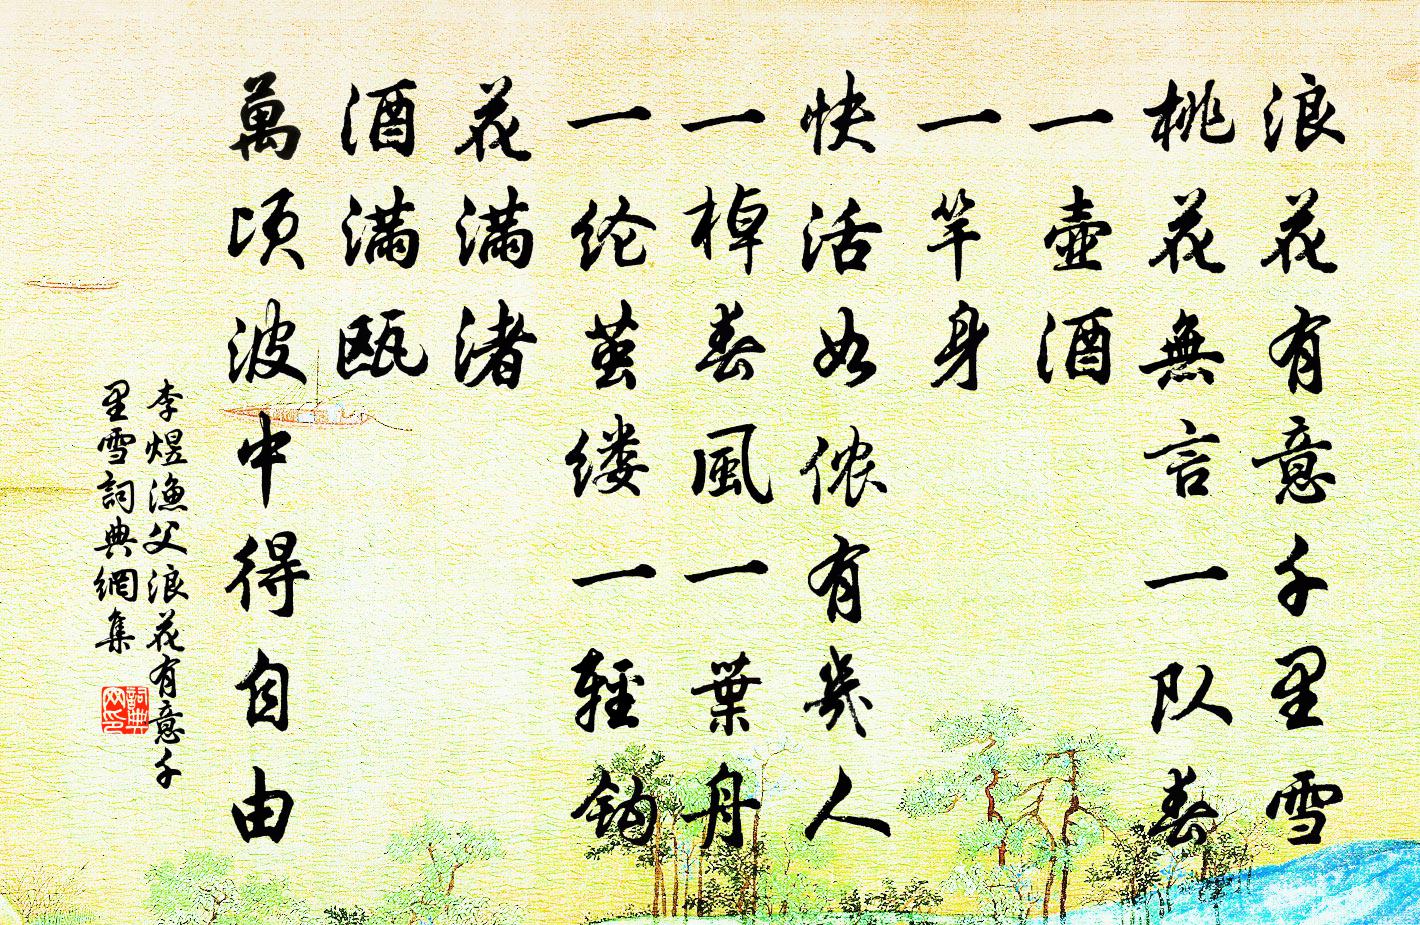 浪花有意千里雪
桃花無言一队春
一壺酒
一竿身
快活如侬有幾人
一棹春風一葉舟
一纶茧缕一輕鈎
花满渚
酒满瓯
萬顷波中得自由
李煜漁父浪花有意千
里雪詞典網集
詞典
网印